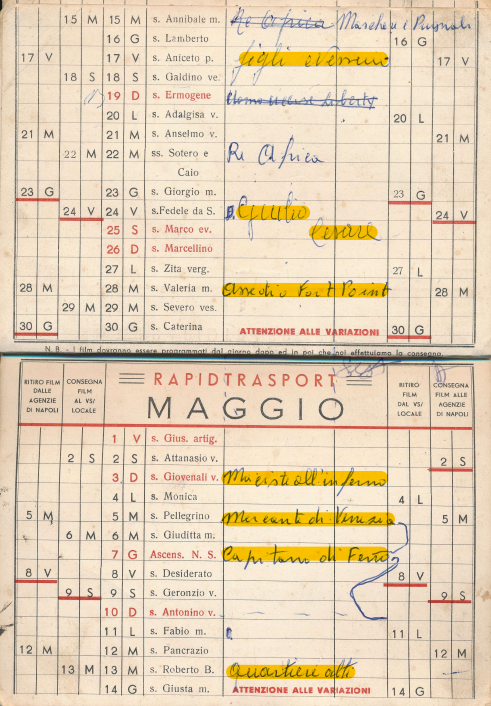 15 M 15 M s. Annibale m. Re Africa Maschere e Pugnali
16 G s. Lamberto 16 G
17 V 17 V s. Aniceto p. figli 17 V
18 S 18 S s. Galdino ve.
19 D s. Ermogene Uomo uccise Liberty
20 L s. Adalgisa v. 20 L
21 M 21 M s. Anselmo v. 21 M
22 M 22 M ss. Sotero e Re Africa
Caio
23 G 23 G s. Giorgio m. 23 G
24 V 24 V s.Fedele da S. Giulio 24 V
25 S s. Marco ev. Cesare
26 D s. Marcellino
27 L s. Zita verg. 27 L
28 M 28 M s. Valeria m. Assedio Fort Point 28 M
29 M 29 M s. Severo ves.
30 G 30 G s. Caterina ATTENZIONE ALLE VARIAZIONI 30 G
N. B. - I film dovranno essere programmati dal giorno dopo ed in poi che noi effettuiamo la consegna.
RITIRO FILM DALLE AGENZIE DI NAPOLI
CONSEGNA FILM AL VS/ LOCALE
RAPIDTRASPORT
MAGGIO
RITIRO FILM DAL VS/ LOCALE
CONSEGNA FILM ALLE AGENZIE DI NAPOLI
1 V s. Gius. artig.
2 S 2 S s. Attanasio v. 2 S
3 D s. Giovenali v. Maciste all'inferno
4 L s. Monica 4 L
5 M 5 M s. Pellegrino Mercante di Venezia 5 M
6 M 6 M s. Giuditta m.
7 G Ascens. N. S. Capitano di Ferro
8 V 8 V s. Desiderato 8 V
9 S 9 S s. Geronzio v. 9 S
10 D s. Antonino v.
11 L s. Fabio m. 11 L
12 M 12 M s. Pancrazio 12 M
13 M 13 M s. Roberto B. Quartieri alti
14 G s. Giusta m. ATTENZIONE ALLE VARIAZIONI 14 G